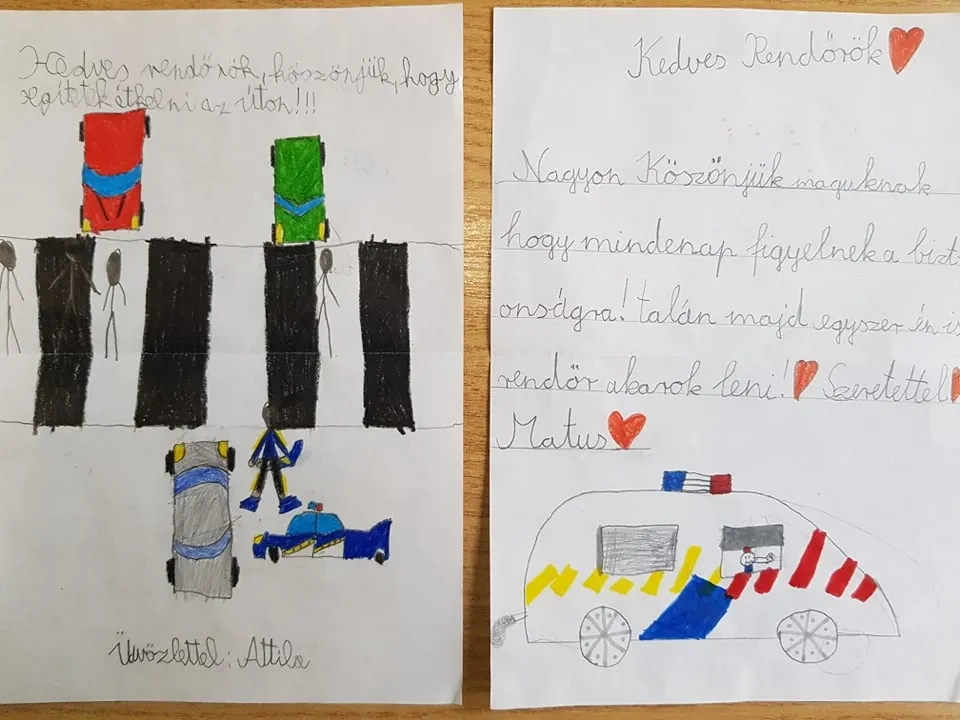 Kedves rendőrök, köszönjük, hogy
segítetek átkelni az úton!!!
Üdvözlettel: Attila
Kedves Rendőrök
Nagyon Köszönjük maguknak
hogy mindenap figyelnek a bizt-
onságra! talán majd egyszer én is
rendőr akarok leni! Szeretettel!
Matus